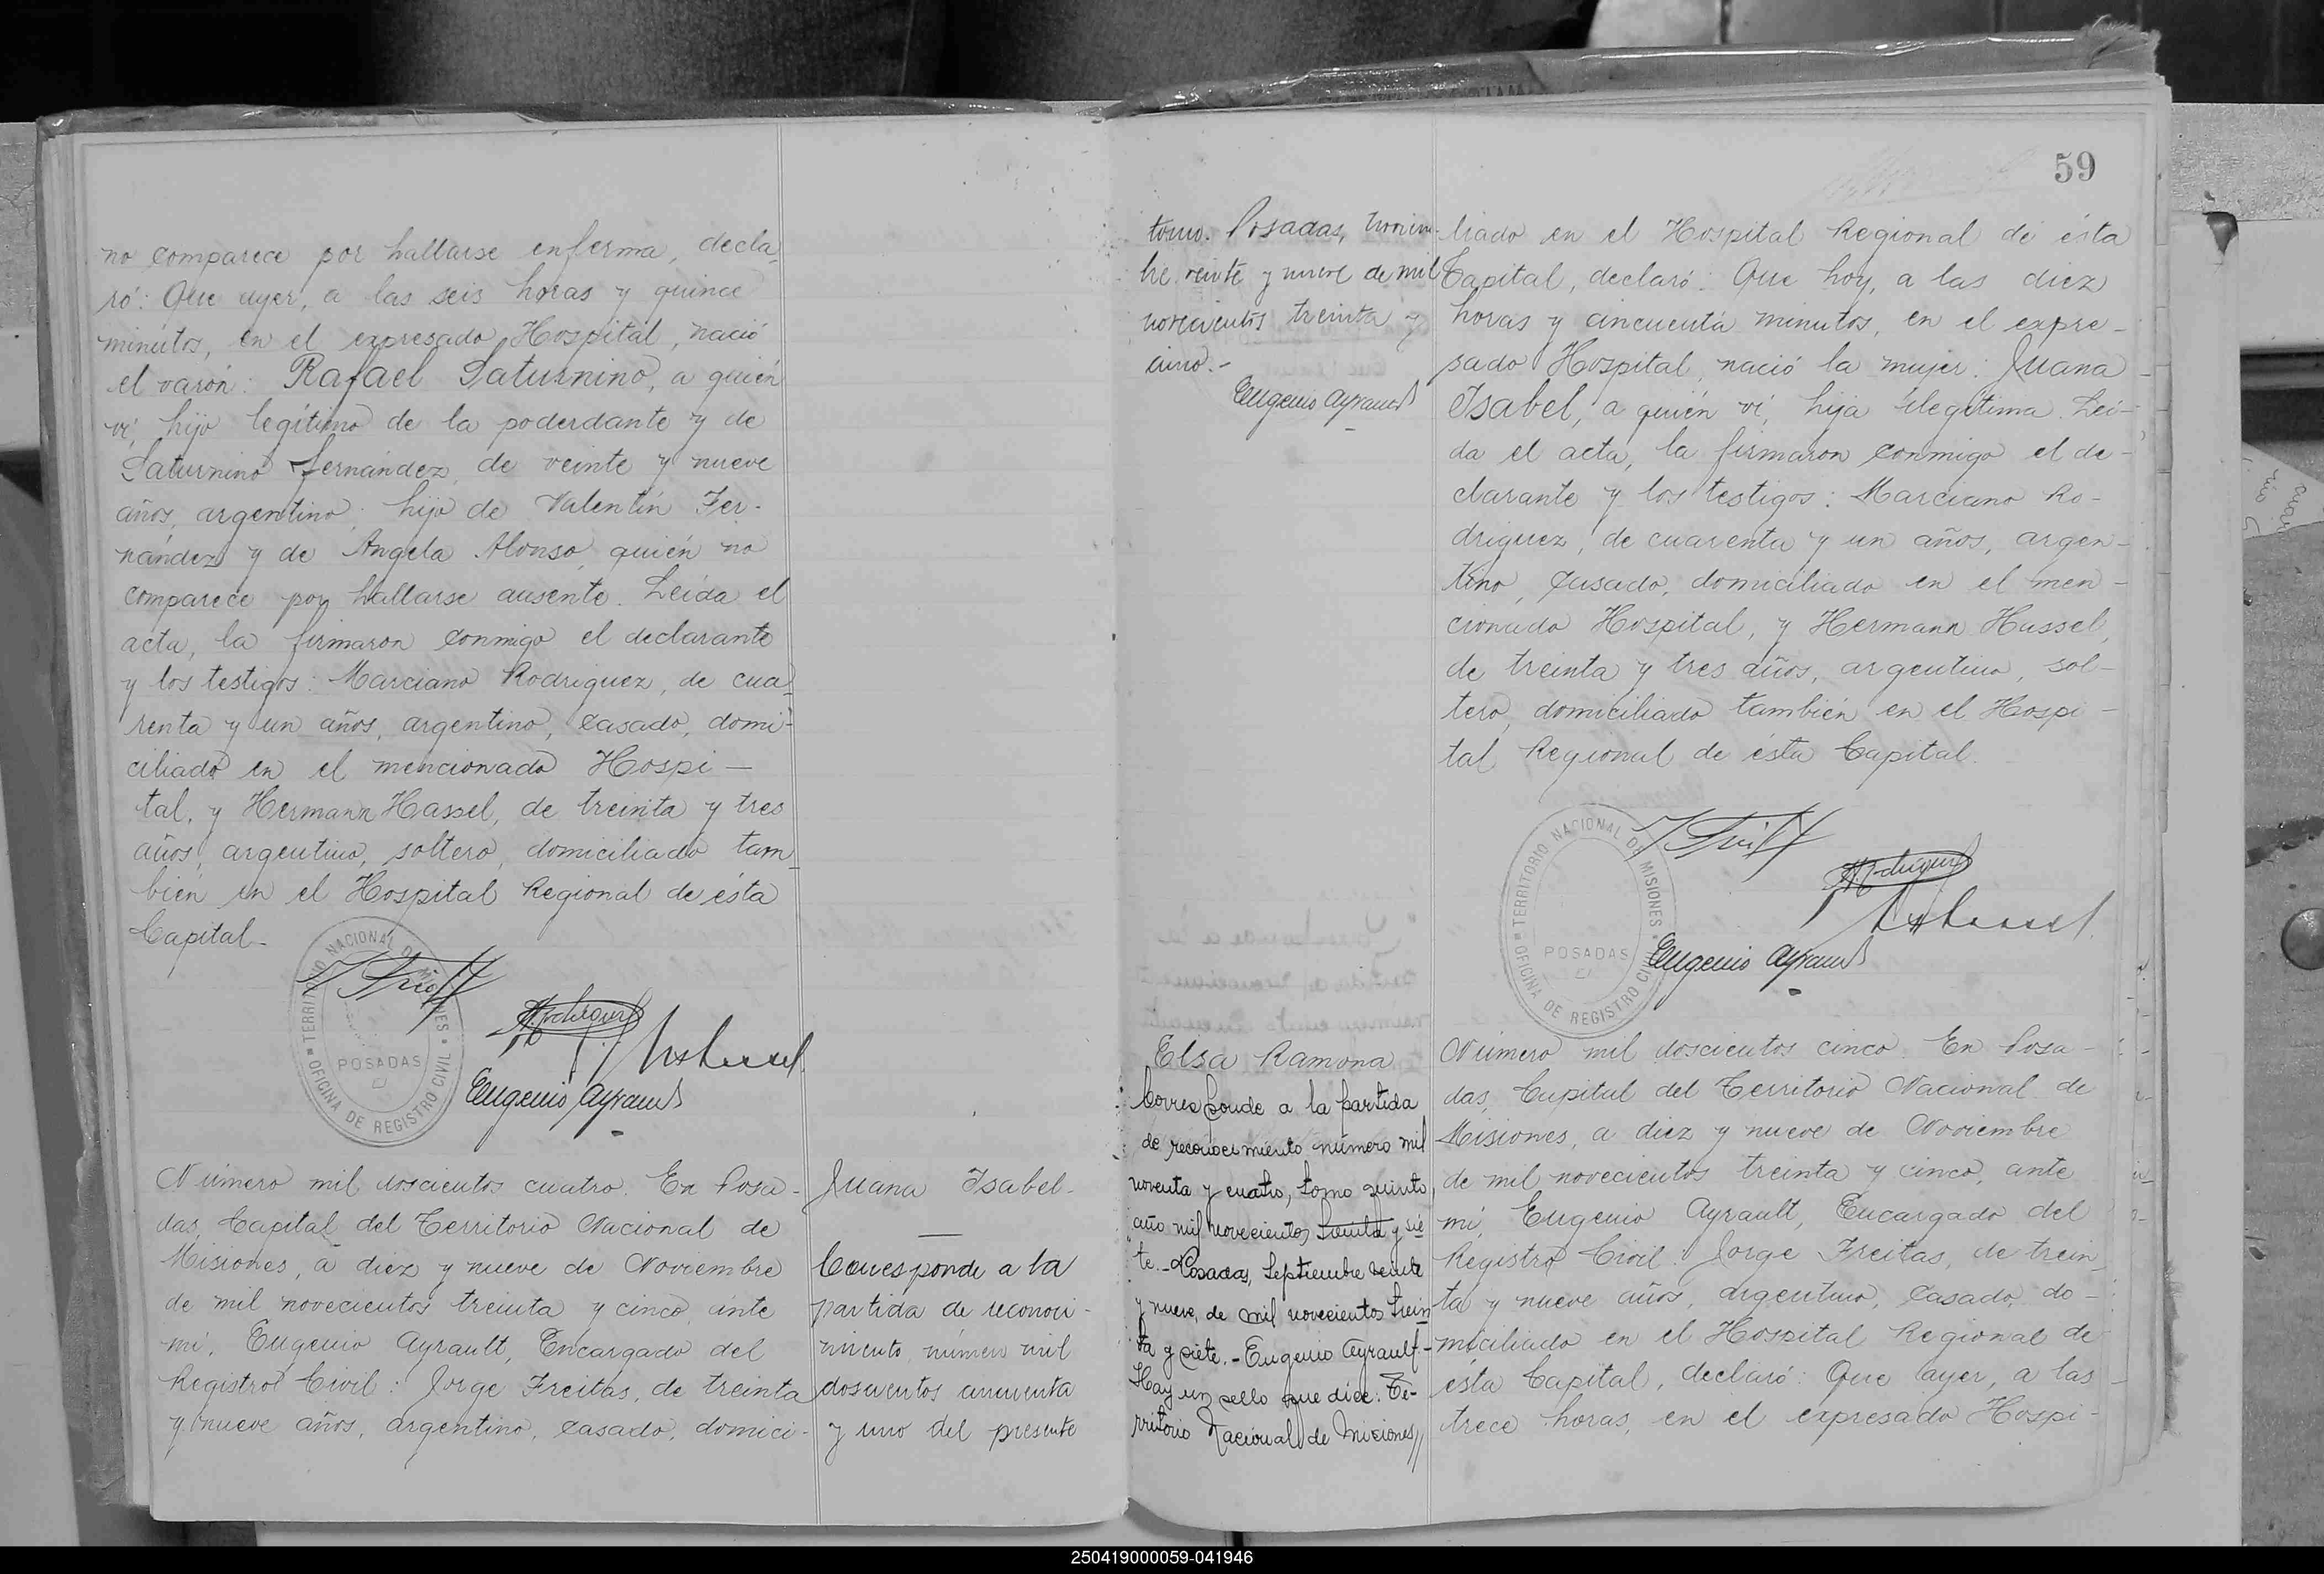 no comparece por hallarse enferma, decla-
ró: Que ayer, a las seis horas y quince
minutos, en el expresado Hospital, nació
el varón: Rafael Saturnino, a quién
ví, hijo legítimo de la poderdante y de
Saturnino Fernández, de veinte y nueve
años, argentino, hijo de Valentín Fer-
nández y de Angela Alonso, quién no
comparece por hallarse ausente. Leída el
acta, la firmaron conmigo el declarante
y los testigos: Marciano Rodriguez, de cua-
renta y un años, argentino, casado, domi-
ciliado en el mencionado Hospi-
tal, y Hermann Hassel, de treinta y tres
años, argentino, soltero, domiciliado tam-
bién en el Hospital Regional de ésta
Capital.
TERRITORIO NACIONAL DE MISIONES
POSADAS
OFICINA DE REGISTRO CIVIL
Eugenio Ayrault
Número mil doscientos cuatro. En Posa-
das, Capital del Territorio Nacional de
Misiones, a diez y nueve de Noviembre
de mil novecientos treinta y cinco, ante
mí, Eugenio Ayrault, Encargado del
Registro Civil: Jorge Freitas, de treinta
y nueve años, argentino, casado, domici-
Juana Isabel.
Corresponde a la
partida de reconoci-
miento, número mil
doscientos cincuenta
y uno del presente
59
tomo. Posadas, noviem-
bre veinte y nueve de mil
novecientos treinta y
cinco.-
Eugenio Ayrault
liado en el Hospital Regional de ésta
Capital, declaró: Que hoy, a las diez
horas y cincuenta minutos, en el expre-
sado Hospital, nació la mujer: Juana
Isabel, a quién ví, hija ilegítima. Leí-
da el acta, la firmaron conmigo el de-
clarante y los testigos: Marciano Ro-
driguez, de cuarenta y un años, argen-
tino, casado, domiciliado en el men-
cionado Hospital, y Hermann Hassel,
de treinta y tres años, argentino, sol-
tero, domiciliado también en el Hospi-
tal Regional de ésta Capital.
TERRITORIO NACIONAL DE MISIONES
POSADAS
OFICINA DE REGISTRO CIVIL
Eugenio Ayrault
Elsa Ramona
Corresponde a la partida
de reconocimiento número mil
noventa y cuatro, tomo quinto,
año mil novecientos treinta y sie
te.- Posadas, Septiembre veinte
y nueve, de mil novecientos trein
ta y siete.- Eugenio Ayrault-
Hay un sello que dice: Te-
rritorio Nacional de Misiones//
Número mil doscientos cinco. En Posa-
das, Capital del Territorio Nacional de
Misiones, a diez y nueve de Noviembre
de mil novecientos treinta y cinco, ante
mí, Eugenio Ayrault, Encargado del
Registro Civil: Jorge Freitas, de trein
ta y nueve años, argentino, casado, do-
miciliado en el Hospital Regional de
ésta Capital, declaró: Que ayer, a las
trece horas, en el expresado Hospi-
250419000059-041946